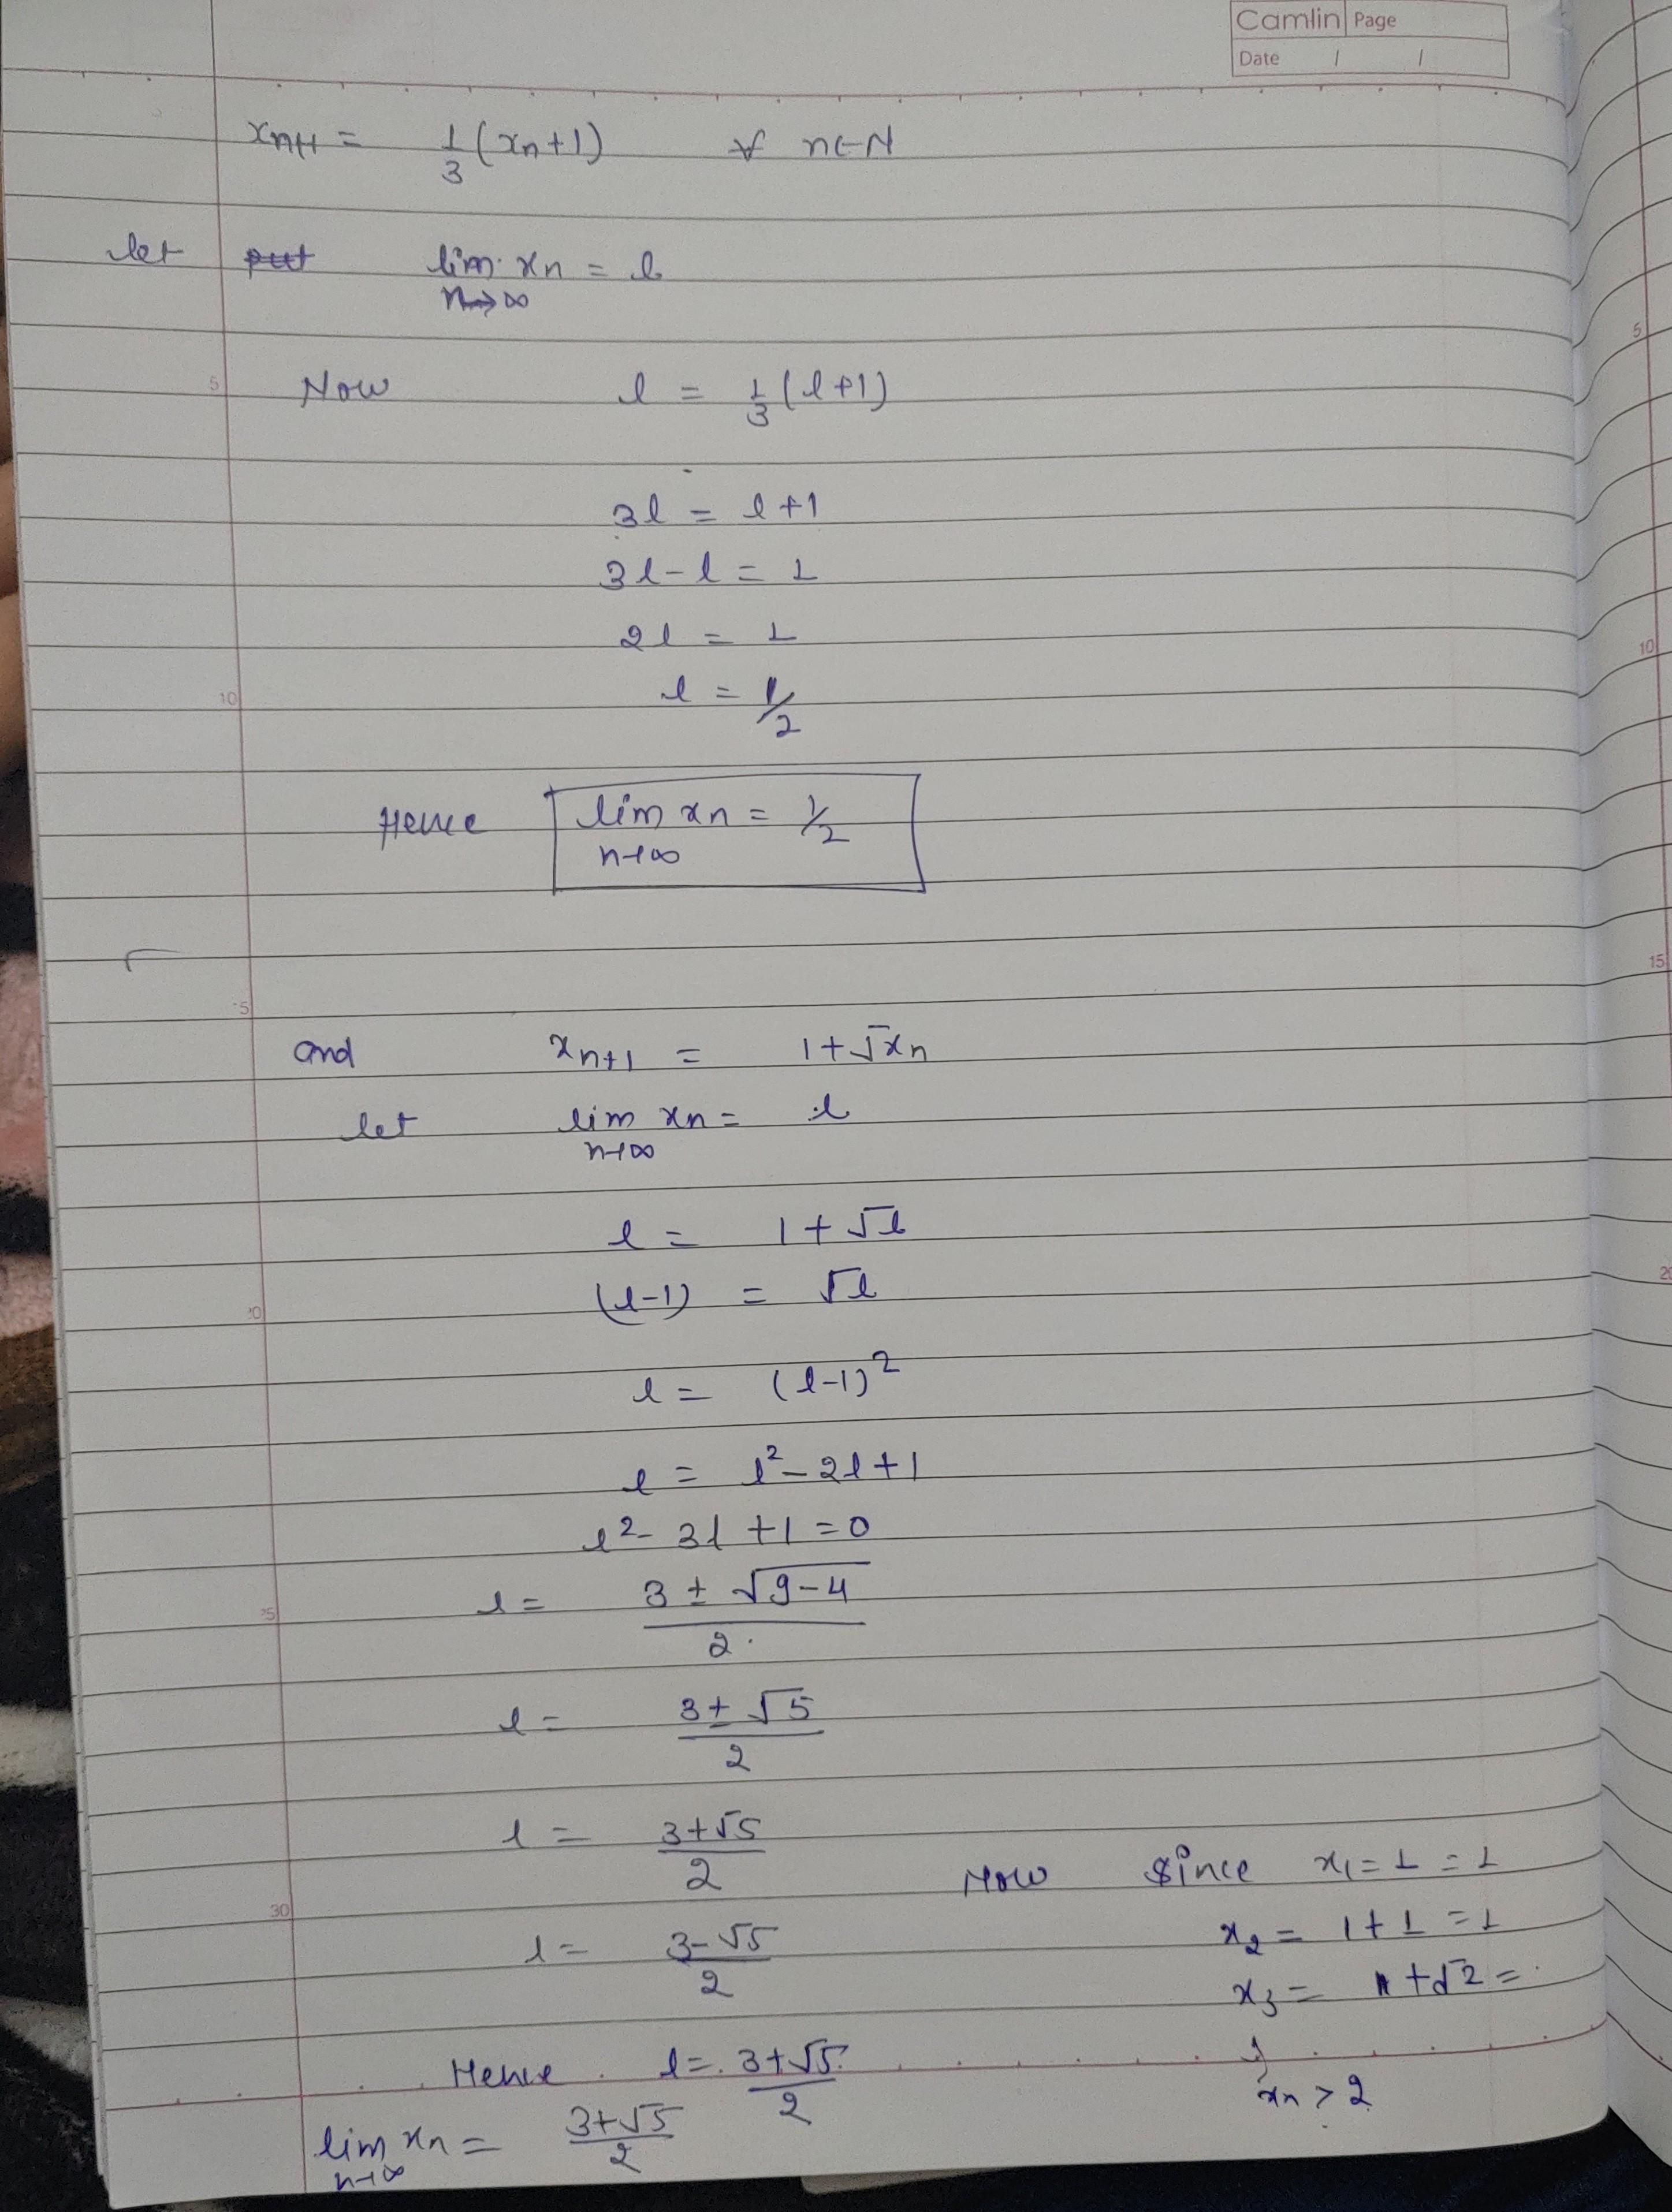 Camlin Page
Date / /
xn+1 = 1/3 (xn+1) ∀ n∈N
let put lim xn = l
n→∞
5 Now l = 1/3 (l+1)
3l = l+1
3l-l = 1
2l = 1
10 l = 1/2
Hence lim xn = 1/2
n→∞
and xn+1 = 1+√xn
let lim xn = l
n→∞
l = 1+√l
(l-1) = √l
l = (l-1)²
l = l²-2l+1
l²-3l+1=0
l = 3 ± √9-4 / 2
l = 3± √5 / 2
l = 3+√5 / 2
Now Since x1 = 1 = 1
30 l = 3-√5 / 2
x2 = 1+1 = 1
x3 = 1+√2 =
Hence l = 3+√5 / 2
xn > 2
lim xn = 3+√5 / 2
n→∞
5
10
15